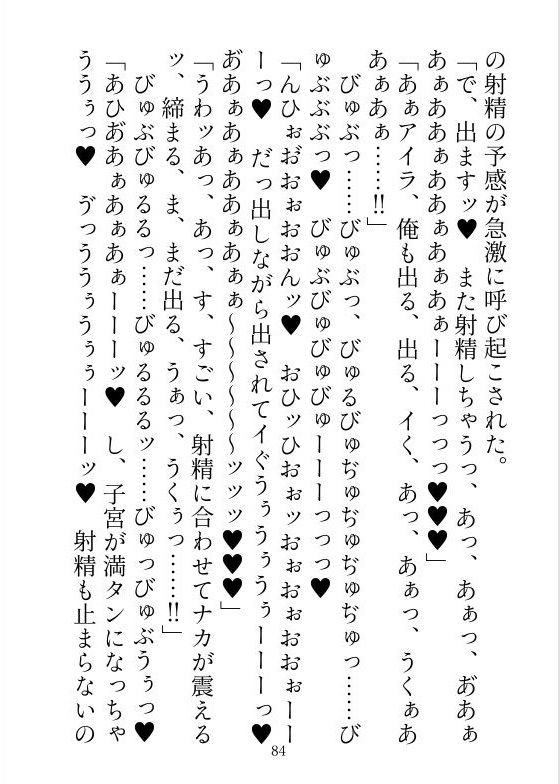 の射精の予感が急激に呼び起こされた。
「で、出ますッ♥　また射精しちゃうっ、あっ、あぁっ、あ゙あぁ
あぁああぁああぁあぁあぁーーーっっっ♥♥♥」
「あぁアイラ、俺も出る、出る、イく、あっ、あぁっ、うくぁあ
あぁあぁ……!!」
　びゅぶっ……びゅぶっ、びゅるびゅぢゅぢゅぢゅぢゅっ……び
ゅぶぶぶっ♥　びゅぶびゅびゅびゅーーーっっっ♥
「んひぉお゙おぉおおんッ♥　おひッひおぉッおぉおぉおおぉーー
ーっ♥　だっ出しながら出されてイぐうぅうぅうぅーーーっ♥
あ゙あぁあぁああぁあぁぁ〜〜〜〜〜〜ッッッ♥♥♥」
「うわッあっ、あっ、す、すごい、射精に合わせてナカが震える
ッ、締まる、ま、まだ出る、うぁっ、うくぅっ……!!」
　びゅぶびゅるるっ……びゅるるるッ……びゅっびゅぶうぅっ♥
「あひあ゙あぁあぁあぁーーーッ♥　し、子宮が満タンになっちゃ
ううぅっ♥　ゔっううぅうぅぅーーーッ♥　射精も止まらないの
84